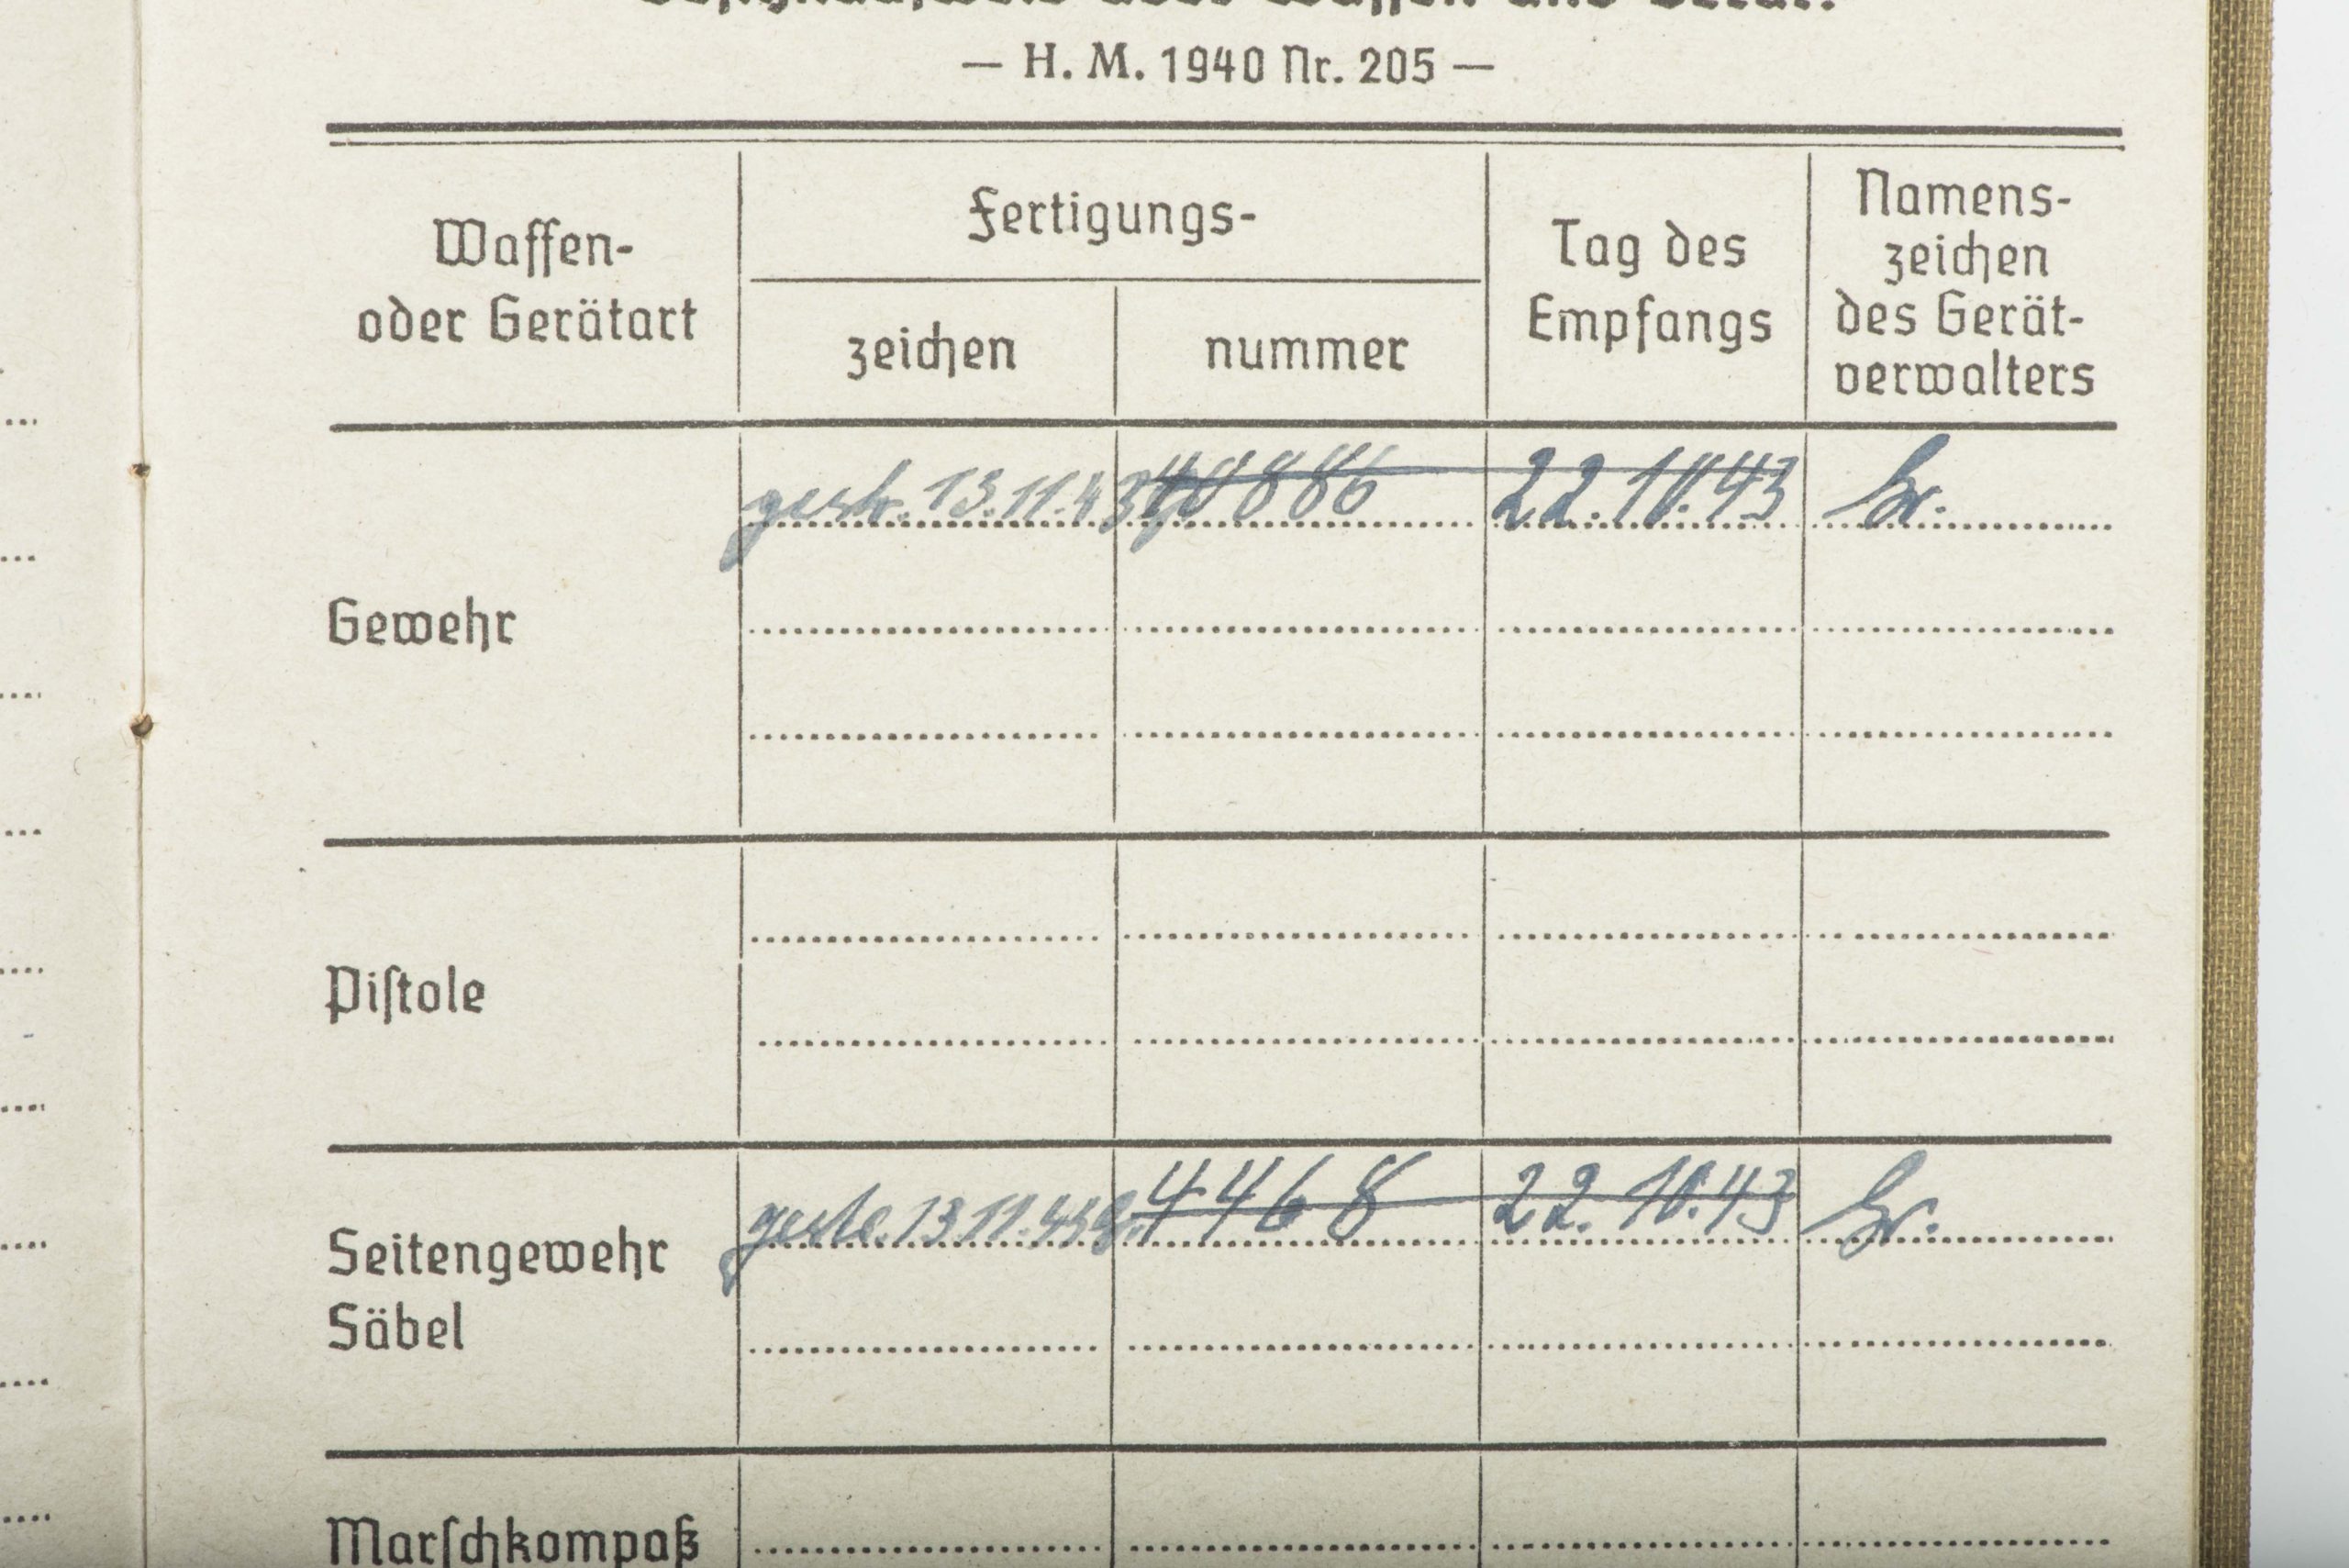 — H. M. 1940 Nr. 205 —
Waffen- oder Gerätart
Fertigungs-
zeichen
nummer
Tag des Empfangs
Namens-
zeichen
des Gerät-
verwalters
Gewehr
gestr. 13.11.43 40886 22.10.43 Gr.
Piſtole
Seitengewehr
Säbel
gestr. 13.11.43 Gr. 4468 22.10.43 Gr.
Marſchkompaß